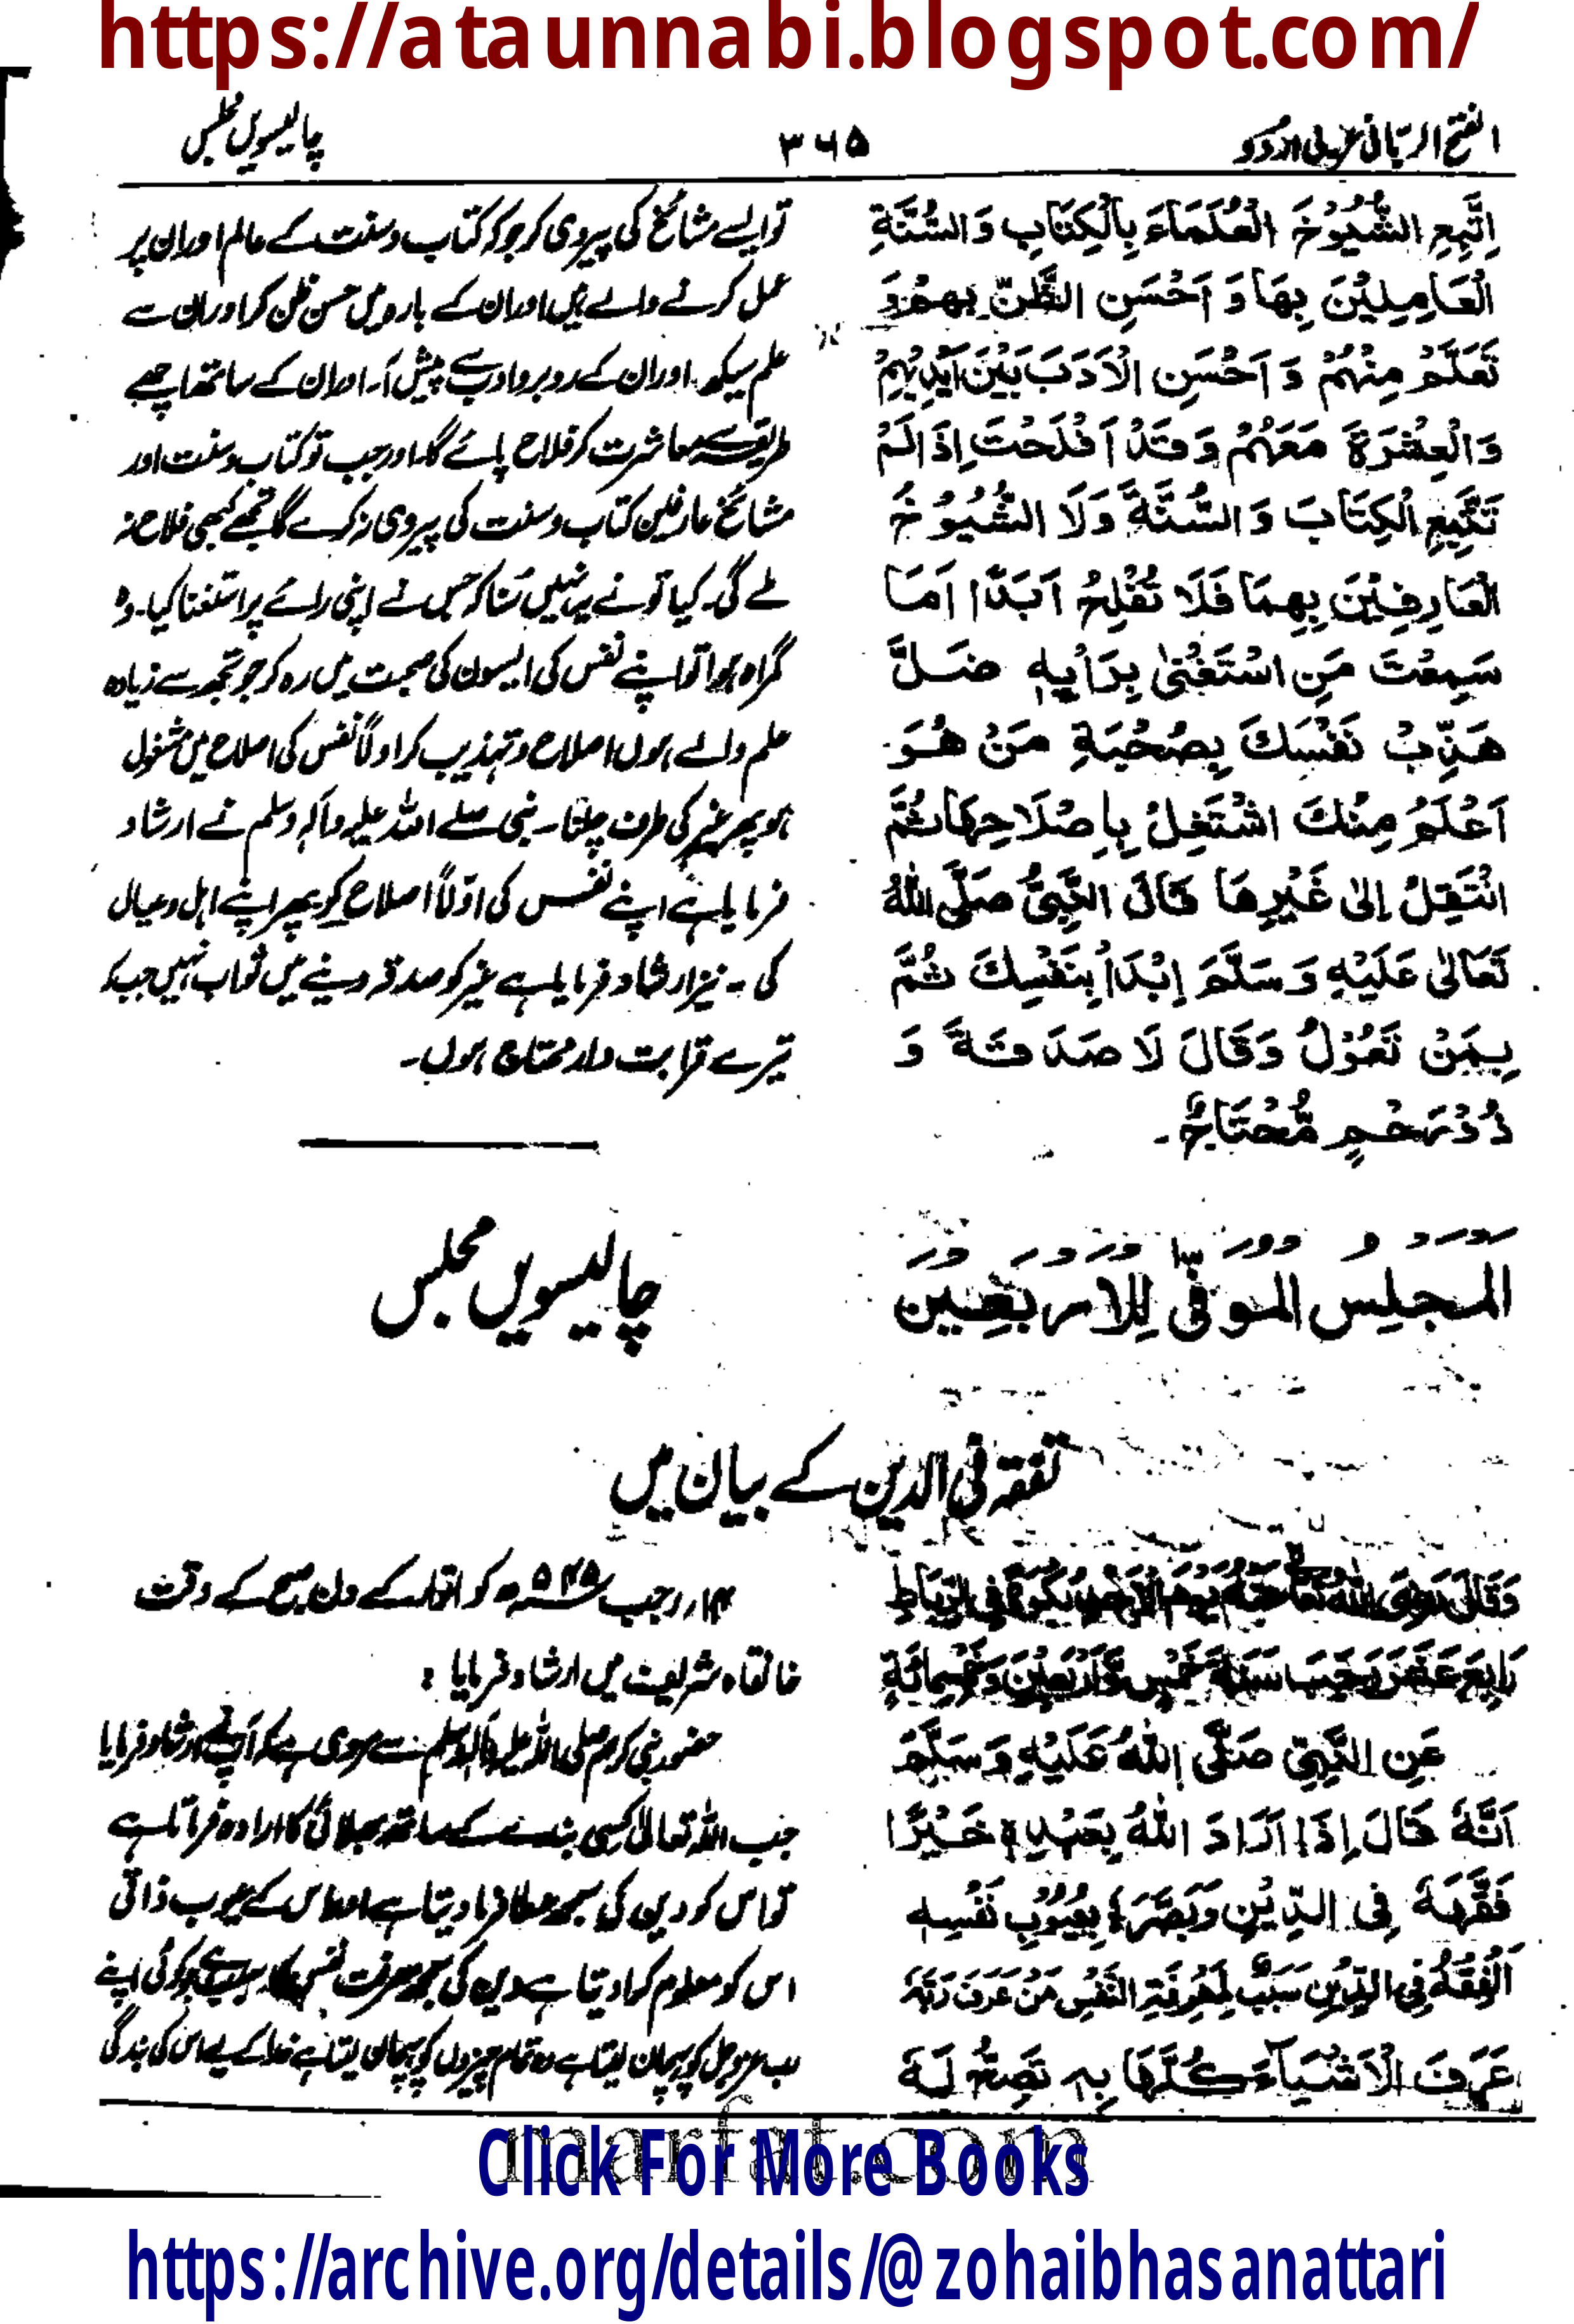 https://ataunnabi.blogspot.com/
الفتح الربانی عربی اردو
۳۶۵
چالیسویں مجلس
اِتَّبِعِ الشُّیُوْخَ الْعُلَمَاءَ بِالْکِتَابِ وَالسُّنَّةِ
الْعَامِلِیْنَ بِهَا وَ اَحْسَنِ الظَّنَّ بِهِمْ وَ
تَعَلَّمْ مِنْهُمْ وَ اَحْسَنِ الْاَدَبَ بَیْنَ اَیْدِیْهِمْ
وَالْعِشْرَةَ مَعَهُمْ وَقَدْ اَفْلَحْتَ اِذَا لَمْ
تَتَّبِعِ الْکِتَابَ وَ السُّنَّةَ وَلَا الشُّیُوْخَ
الْعَارِفِیْنَ بِهِمَا فَلَا تُفْلِحُ اَبَدًا اَمَا
سَمِعْتَ مَنِ اسْتَغْنٰی بِرَأْیِهٖ ضَلَّ
هَذِّبْ نَفْسَكَ بِصُحْبَةِ مَنْ هُوَ
اَعْلَمُ مِنْكَ اشْتَغِلْ بِاِصْلَاحِهَا ثُمَّ
انْتَقِلْ اِلٰی غَیْرِهَا قَالَ النَّبِیُّ صَلَّی اللّٰهُ
تَعَالٰی عَلَیْهِ وَسَلَّمَ اِبْدَأْ بِنَفْسِكَ ثُمَّ
بِمَنْ تَعُوْلُ وَقَالَ لَا صَدَقَةَ وَ
ذُوْ رَحِمٍ مُّحْتَاجٌ۔
تو ایسے مشائخ کی پیروی کر جو کہ کتاب و سنت کے عالم اور ان پر
عمل کرنے والے ہیں اور ان کے بارہ میں حسن ظن کر اور ان سے
علم سیکھ۔ اور ان کے روبرو ادب سے پیش آ۔ اور ان کے ساتھ اچھے
طریقے سے معاشرت کر فلاح پائے گا۔ اور جب تو کتاب و سنت اور
مشائخ عارفین کتاب و سنت کی پیروی نہ کرے گا تجھے کبھی فلاح نہ
ملے گی۔ کیا تو نے یہ نہیں سنا کہ جس نے اپنی رائے پر استغنا کیا۔ وہ
گمراہ ہوا تو اپنے نفس کی ایسوں کی صحبت میں رہ کر جو تجھ سے زیادہ
علم والے ہوں اصلاح و تہذیب کر اولاً نفس کی اصلاح میں مشغول
ہو پھر غیر کی طرف چلنا۔ نبی صلے اللہ علیہ وآلہ وسلم نے ارشاد
فرمایا ہے اپنے نفس کی اوّلاً اصلاح کر پھر اپنے اہل و عیال
کی۔ نیز ارشاد فرمایا ہے غیر کو صدقہ دینے میں ثواب نہیں جب کہ
تیرے قرابت دار محتاج ہوں۔
اَلْمَجْلِسُ الْمُوَفِّی لِلْاَرْبَعِیْنَ
چالیسویں مجلس
تفقہ فی الدین کے بیان میں
وَقَالَ رَضِیَ اللّٰهُ تَعَالٰی عَنْهُ یَوْمَ الْاَحَدِ بُکْرَةً فِی الرِّبَاطِ
رَابِعَ عَشَرَ رَجَبَ سَنَةَ خَمْسٍ وَّاَرْبَعِیْنَ وَخَمْسِمِائَةٍ
عَنِ النَّبِیِّ صَلَّی اللّٰهُ عَلَیْهِ وَسَلَّمَ
اَنَّهٗ قَالَ اِذَا اَرَادَ اللّٰهُ بِعَبْدِهٖ خَیْرًا
فَقَّهَهٗ فِی الدِّیْنِ وَبَصَّرَهٗ بِعُیُوْبِ نَفْسِهٖ
اَلْفِقْهُ فِی الدِّیْنِ سَبَبٌ لِمَعْرِفَةِ النَّفْسِ مَنْ عَرَفَ رَبَّهٗ
عَرَفَ الْاَشْیَاءَ کُلَّهَا بِهٖ تَصِحُّ لَهٗ
۱۴؍ رجب ۵۴۵ھ کو اتوار کے دن صبح کے وقت
خانقاہ شریف میں ارشاد فرمایا :
حضور نبی کریم صلی اللہ علیہ وآلہ وسلم سے مروی ہے کہ آپ نے ارشاد فرمایا
جب اللہ تعالیٰ کسی بندے کے ساتھ بھلائی کا ارادہ فرماتا ہے
تو اس کو دین کی سمجھ عطا فرما دیتا ہے اور اس کے عیوب ذاتی
اس کو معلوم کرا دیتا ہے دین کی سمجھ معرفت نفس کا سبب ہے جو کوئی اپنے
رب عزوجل کو پہچان لیتا ہے وہ تمام چیزوں کو پہچان لیتا ہے خدا کے لیے اس کی بندگی
marfat.com
Click For More Books
https://archive.org/details/@zohaibhasanattari